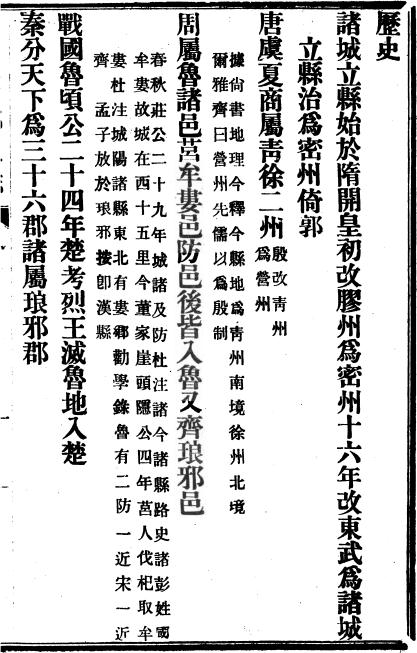 歷史
諸城立縣始於隋開皇初改膠州爲密州十六年改東武爲諸城
立縣治爲密州倚郭
唐虞夏商屬靑徐二州殷改靑州
爲營州
據尙書地理今釋今縣地爲靑州南境徐州北境
爾雅齊曰營州先儒以爲殷制
周屬魯諸邑莒牟婁邑防邑後皆入魯又齊琅邪邑
春秋莊公二十九年城諸及防杜注諸今諸縣路史諸彭姓國
牟婁故城在西十五里今董家崖頭隱公四年莒人伐杞取牟
婁杜注城陽諸縣東北有婁鄉勸學錄魯有二防一近宋一近
齊 孟子放於琅邪按卽漢縣
戰國魯頃公二十四年楚考烈王滅魯地入楚
秦分天下爲三十六郡諸屬琅邪郡